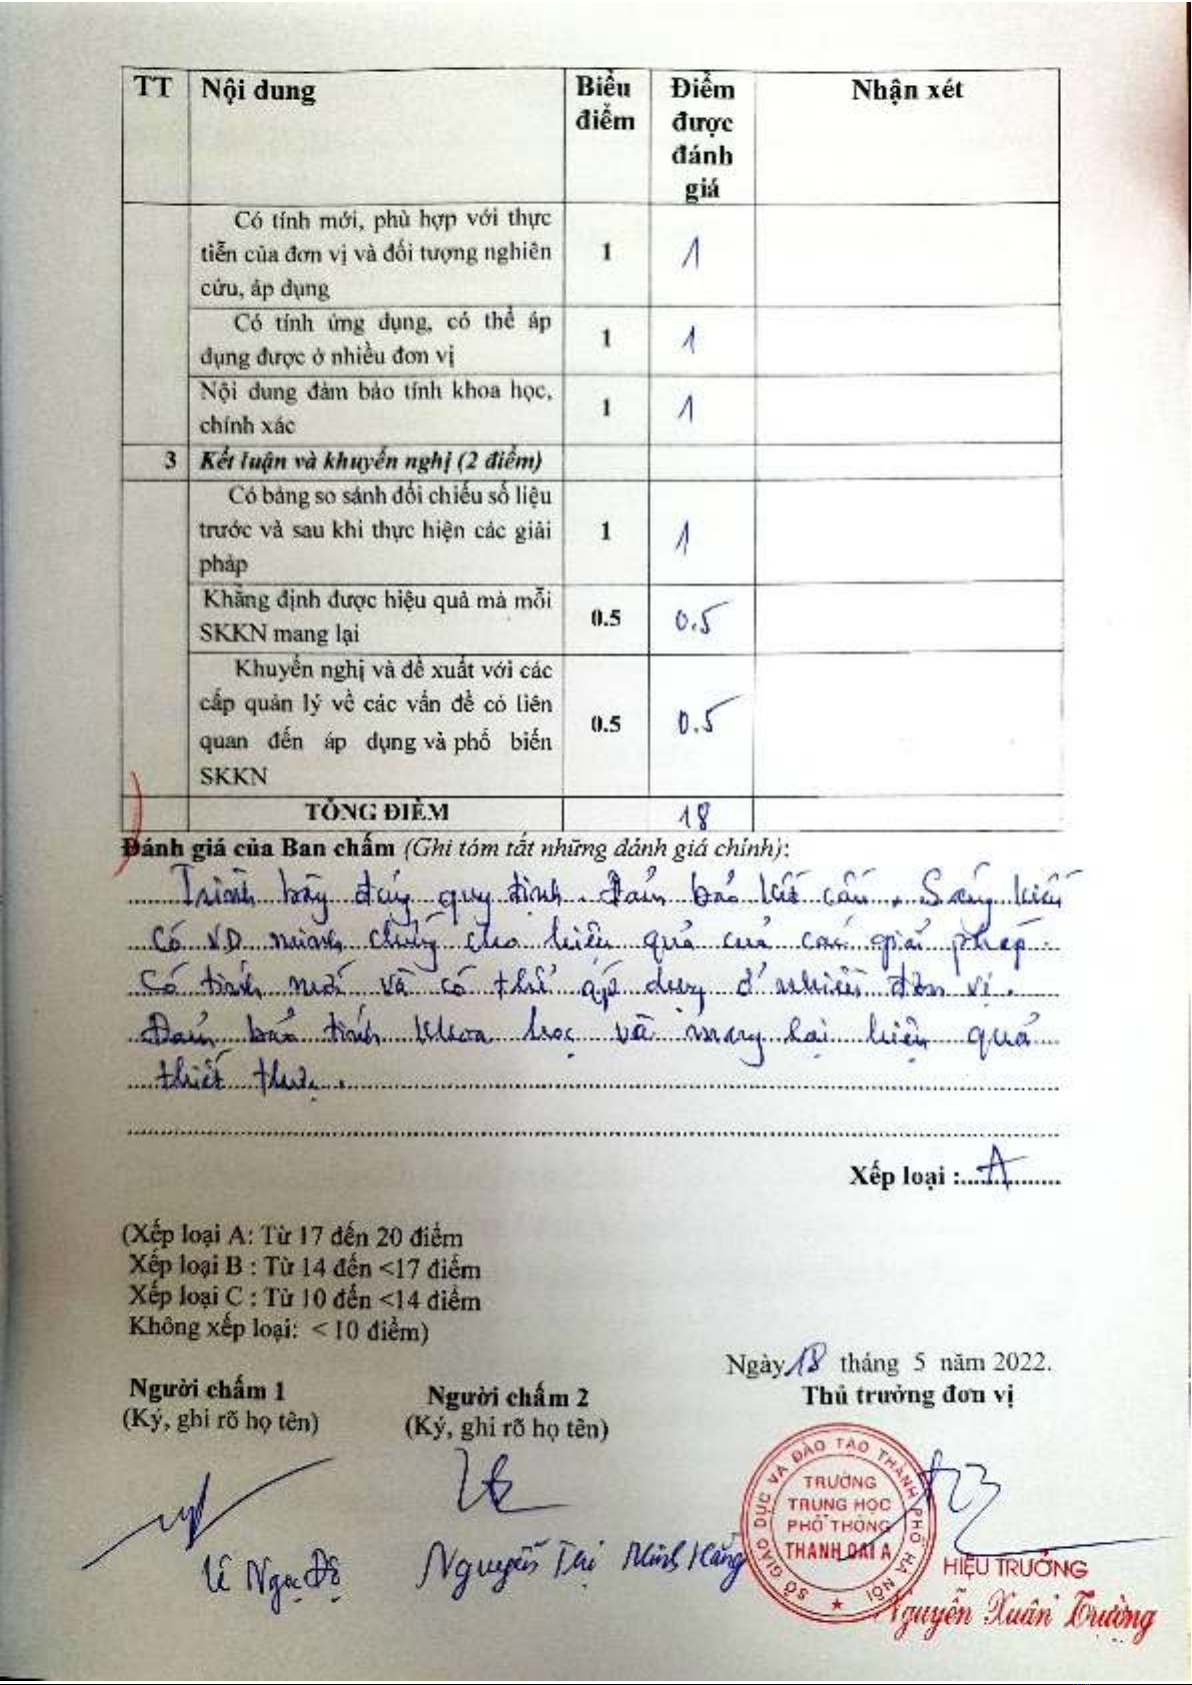 TT Nội dung Biểu điểm Điểm được đánh giá Nhận xét
Có tính mới, phù hợp với thực
tiễn của đơn vị và đối tượng nghiên 1 1
cứu, áp dụng
Có tính ứng dụng, có thể áp
dụng được ở nhiều đơn vị 1 1
Nội dung đảm bảo tính khoa học,
chính xác 1 1
3 Kết luận và khuyến nghị (2 điểm)
Có bảng so sánh đối chiếu số liệu
trước và sau khi thực hiện các giải 1 1
pháp
Khẳng định được hiệu quả mà mỗi
SKKN mang lại 0.5 0.5
Khuyến nghị và đề xuất với các
cấp quản lý về các vấn đề có liên
quan đến áp dụng và phổ biến 0.5 0.5
SKKN
TỔNG ĐIỂM 18
Đánh giá của Ban chấm (Ghi tóm tắt những đánh giá chính):
Trình bày đúng quy định. Đảm bảo kết cấu. Sáng kiến
có VD minh chứng cho hiệu quả của các giải pháp.
Có tính mới và có thể áp dụng ở nhiều đơn vị.
Đảm bảo tính khoa học và mang lại hiệu quả
thiết thực.
Xếp loại : A
(Xếp loại A: Từ 17 đến 20 điểm
Xếp loại B : Từ 14 đến <17 điểm
Xếp loại C : Từ 10 đến <14 điểm
Không xếp loại: < 10 điểm)
Ngày 18 tháng 5 năm 2022.
Người chấm 1 Người chấm 2 Thủ trưởng đơn vị
(Ký, ghi rõ họ tên) (Ký, ghi rõ họ tên)
SỞ GIÁO DỤC VÀ ĐÀO TẠO THÀNH PHỐ HÀ NỘI
TRƯỜNG
TRUNG HỌC
PHỔ THÔNG
THANH OAI A
Lê Ngọc Độ Nguyễn Thị Minh Hằng HIỆU TRƯỞNG
Nguyễn Xuân Trường